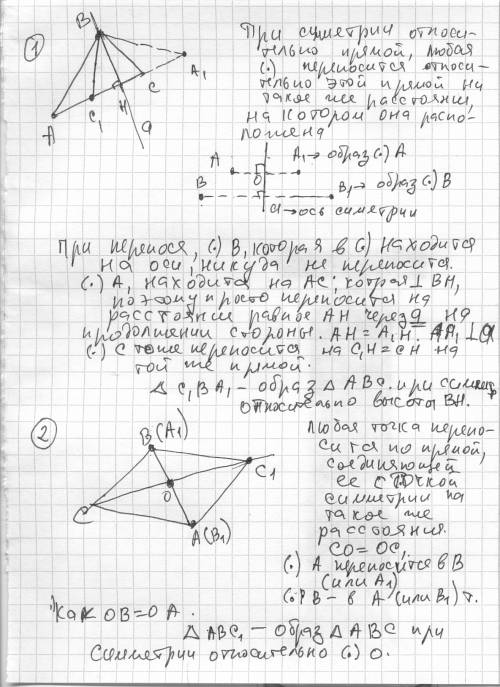 1
B
A
C1
H
C
A1
a
При симетрии относи-
тельно прямой, любая
(.) переносится относи-
тельно этой прямой на
такое же расстояние,
на котором она распо-
ложена
A
O
A1→ образ (.) A
B
B1→ образ (.) B
a→ось симетрии
При переносе, (.) B, которая в (.) находится
на оси, никуда не переносится.
(.) A, находится на AC, котрая ⊥ BH,
поэтому просто переносится на
расстояние равное AH через a на
продолжении стороны. AH = A1H. AA1 ⊥ a
(.) C тоже переносится на C1H = CH на
той же прямой.
Δ C1BA1 – образ Δ ABC. при симетр
относительно высоты BH.
2
B(A1)
C1
O
C
A(B1)
Любая точка перено-
сится по прямой,
соединяющей
ее с точкой
симетрии на
такое же
расстояния.
CO = OC1
(.) A переносится в B
(или A1)
(.) B – в A (или B1) т.
как OB = OA.
Δ ABC1 – образ Δ ABC при
симметрии относительно (.) O.